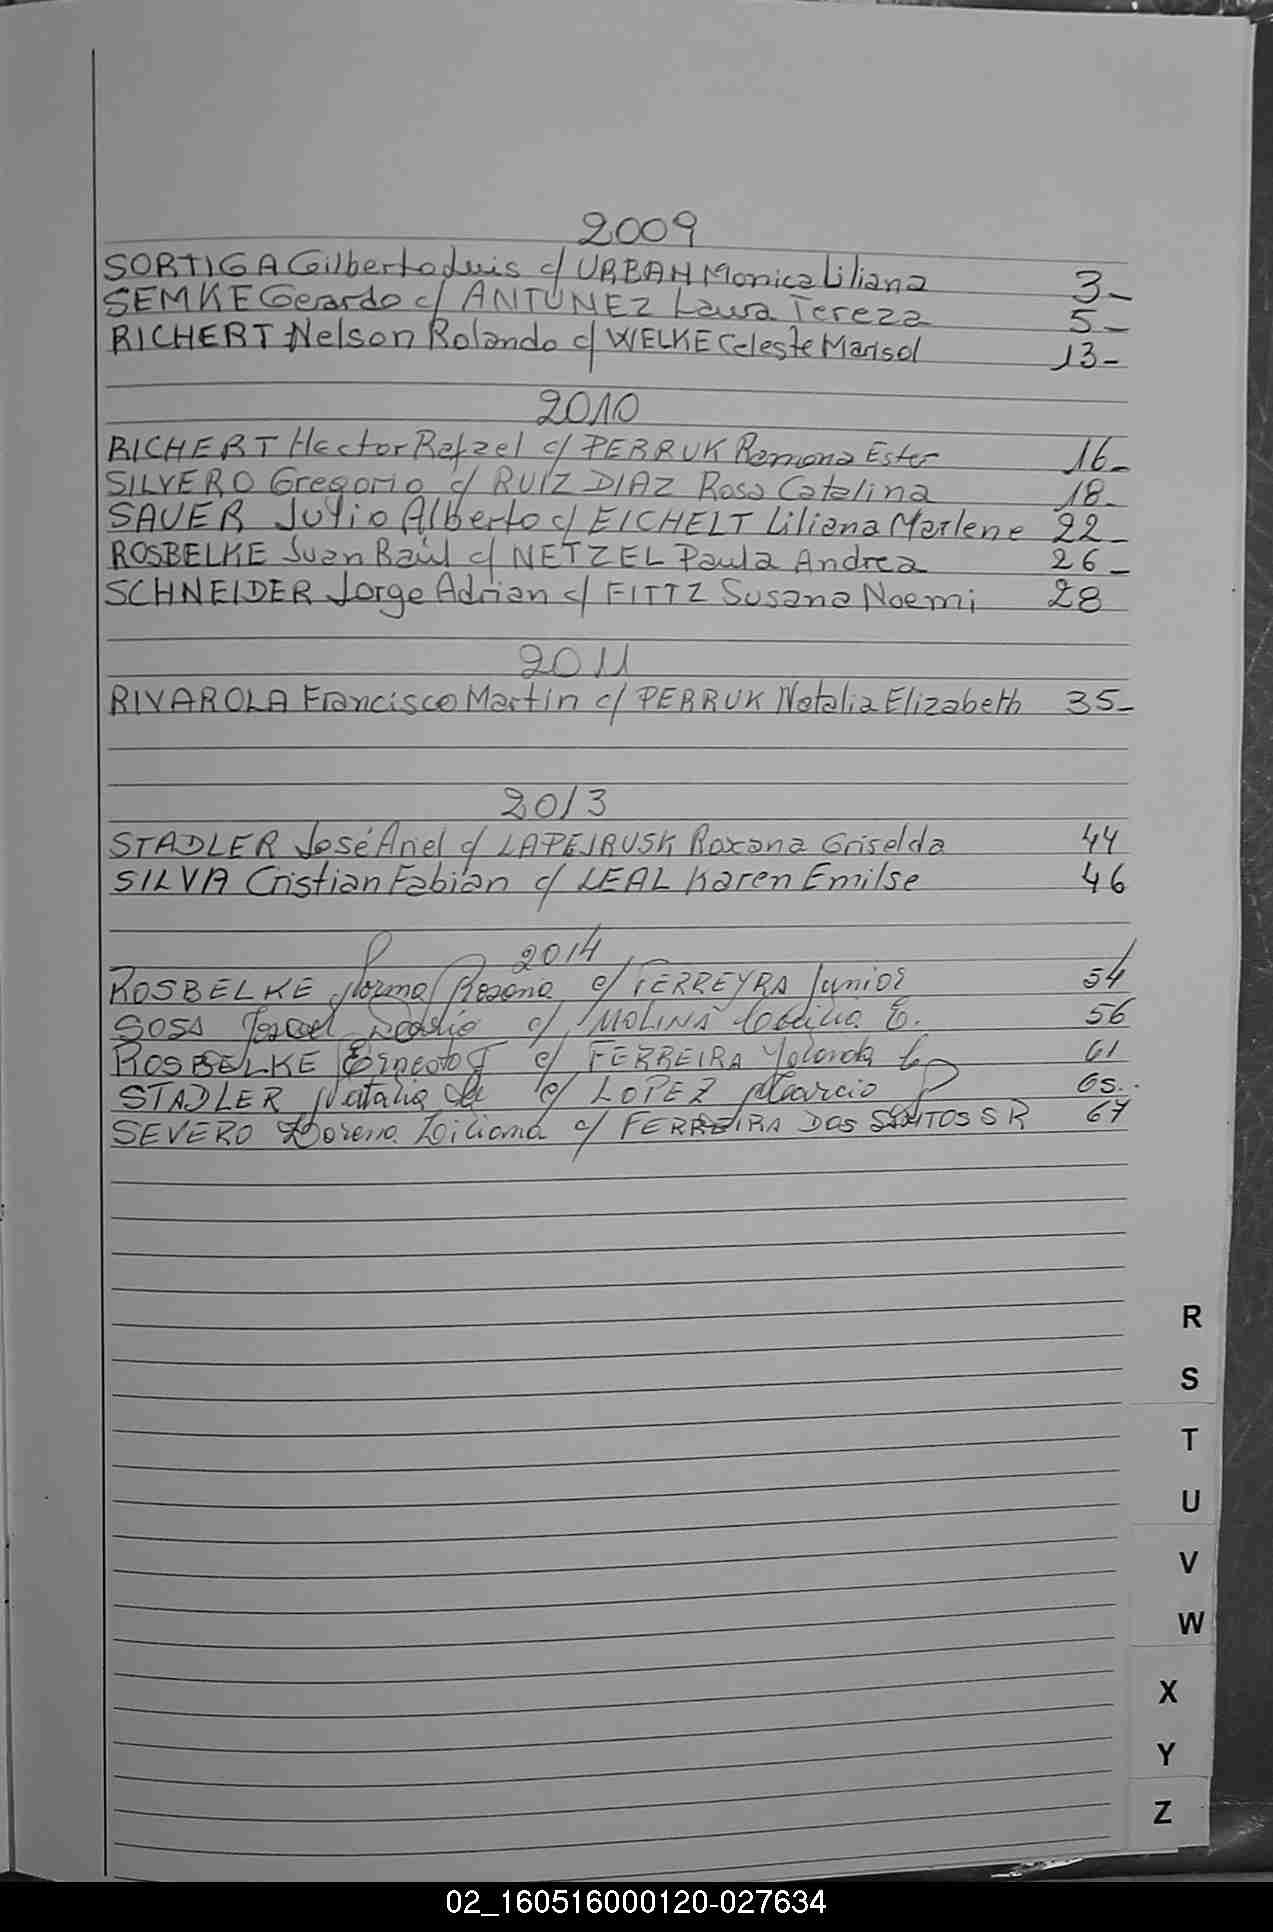 2009
SORTIGA Gilberto Luis c/ URBAN Monica Liliana 3-
SEMKE Gerardo c/ ANTUNEZ Laura Tereza 5-
RICHERT Nelson Rolando c/ WELKE Celeste Marisol 13-
2010
RICHERT Hector Rafael c/ PERRUK Ramona Ester 16-
SILVERO Gregorio c/ RUIZ DIAZ Rosa Catalina 18-
SAUER Julio Alberto c/ EICHELT Liliana Marlene 22-
ROSBELKE Juan Raúl c/ NETZEL Paula Andrea 26-
SCHNEIDER Jorge Adrian c/ FITTZ Susana Noemi 28
2011
RIVAROLA Francisco Martin c/ PERRUK Natalia Elizabeth 35-
2013
STADLER José Ariel c/ LAPEJRUSK Roxana Griselda 44
SILVA Cristian Fabian c/ LEAL Karen Emilse 46
2014
ROSBELKE Norma Rosana c/ FERREYRA Junior 54
SOSA c/ MOLINA Cecilia E. 56
ROSBELKE Ernesto F c/ FERREIRA Yolanda 61
STADLER Natalia c/ LOPEZ Marcio 65
SEVERO Lorena Liliana c/ FERREIRA DOS SANTOS S R 67
R
S
T
U
V
W
X
Y
Z
02_160516000120-027634